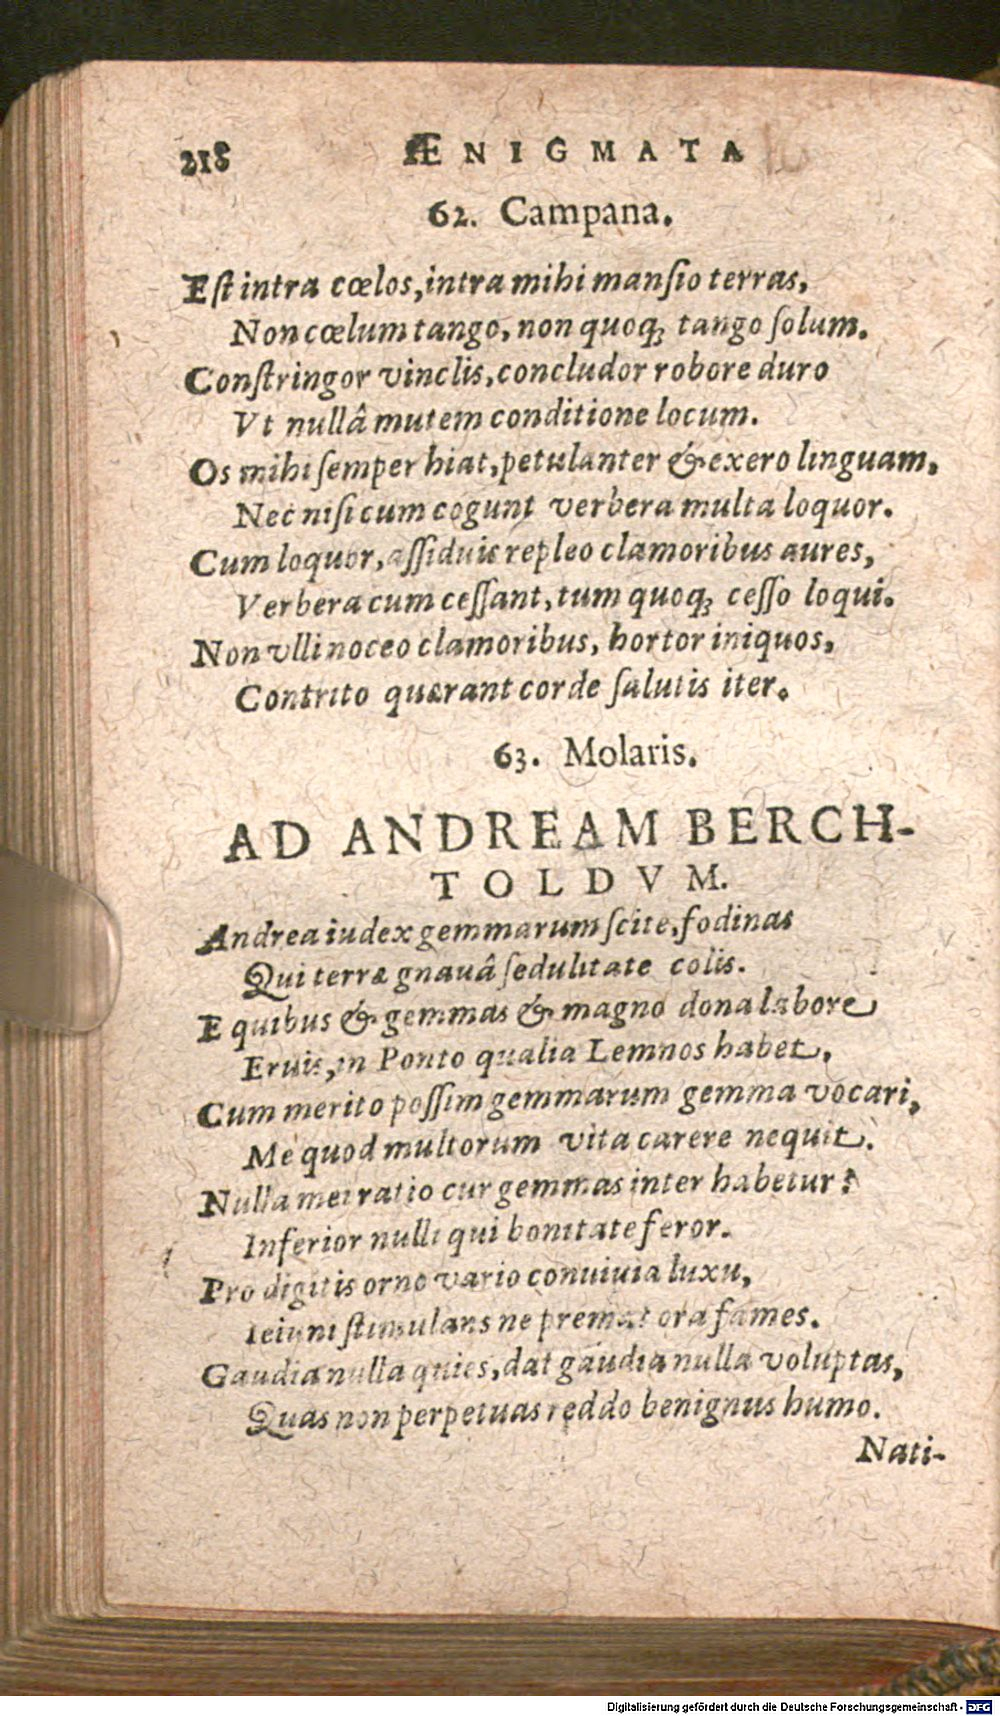 218 ÆNIGMATA
62. Campana.
Eſt intra cœlos, intra mihi manſio terras,
Non cœlum tango, non quoq; tango ſolum.
Conſtringor vinclis, concludor robore duro
Vt nullâ mutem conditione locum.
Os mihi ſemper hiat, petulanter & exero linguam,
Nec niſi cum cogunt verbera multa loquor.
Cum loquor, aſſiduis repleo clamoribus aures,
Verbera cum ceſſant, tum quoq; ceſſo loqui.
Non vlli noceo clamoribus, hortor iniquos,
Contrito quærant corde ſalutis iter.
63. Molaris.
AD ANDREAM BERCH-
TOLDVM.
Andrea iudex gemmarum ſcite, fodinas
Qui terræ gnauâ ſedulitate colis.
E quibus & gemmas & magno dona labore
Eruis, in Ponto qualia Lemnos habet,
Cum merito poſſim gemmarum gemma vocari,
Me quod multorum vita carere nequit.
Nulla mei ratio cur gemmas inter habetur?
Inferior nulli qui bonitate feror.
Pro digitis orno vario conuiuia luxu,
Ieiuni ſtimulans ne premat ora fames.
Gaudia nulla quies, dat gaudia nulla voluptas,
Quas non perpetuas reddo benignus humo.
Nati-
Digitalisierung gefördert durch die Deutsche Forschungsgemeinschaft - DFG